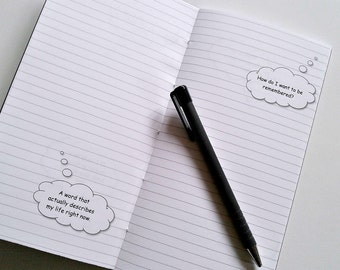 A word that
actually describes
my life right now.
How do I want to be
remembered?